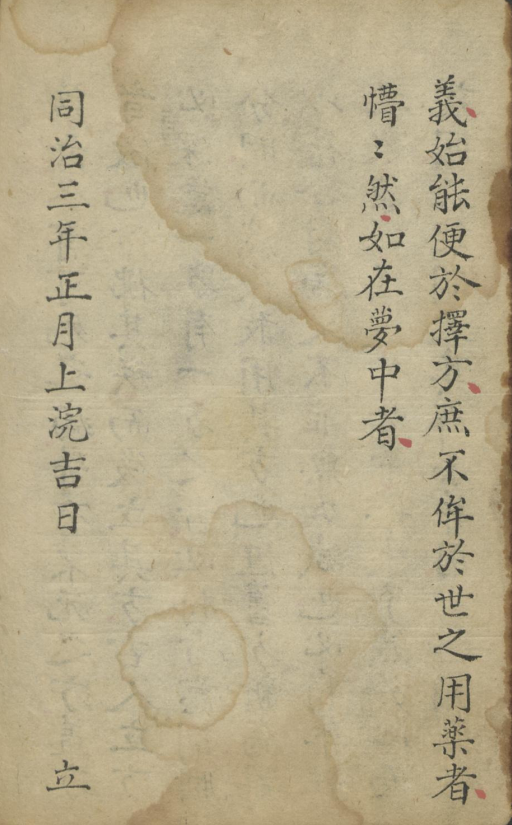 義始能便於擇方庶不侔於世之用藥者
懵〻然如在夢中者
同治三年正月上浣吉日立